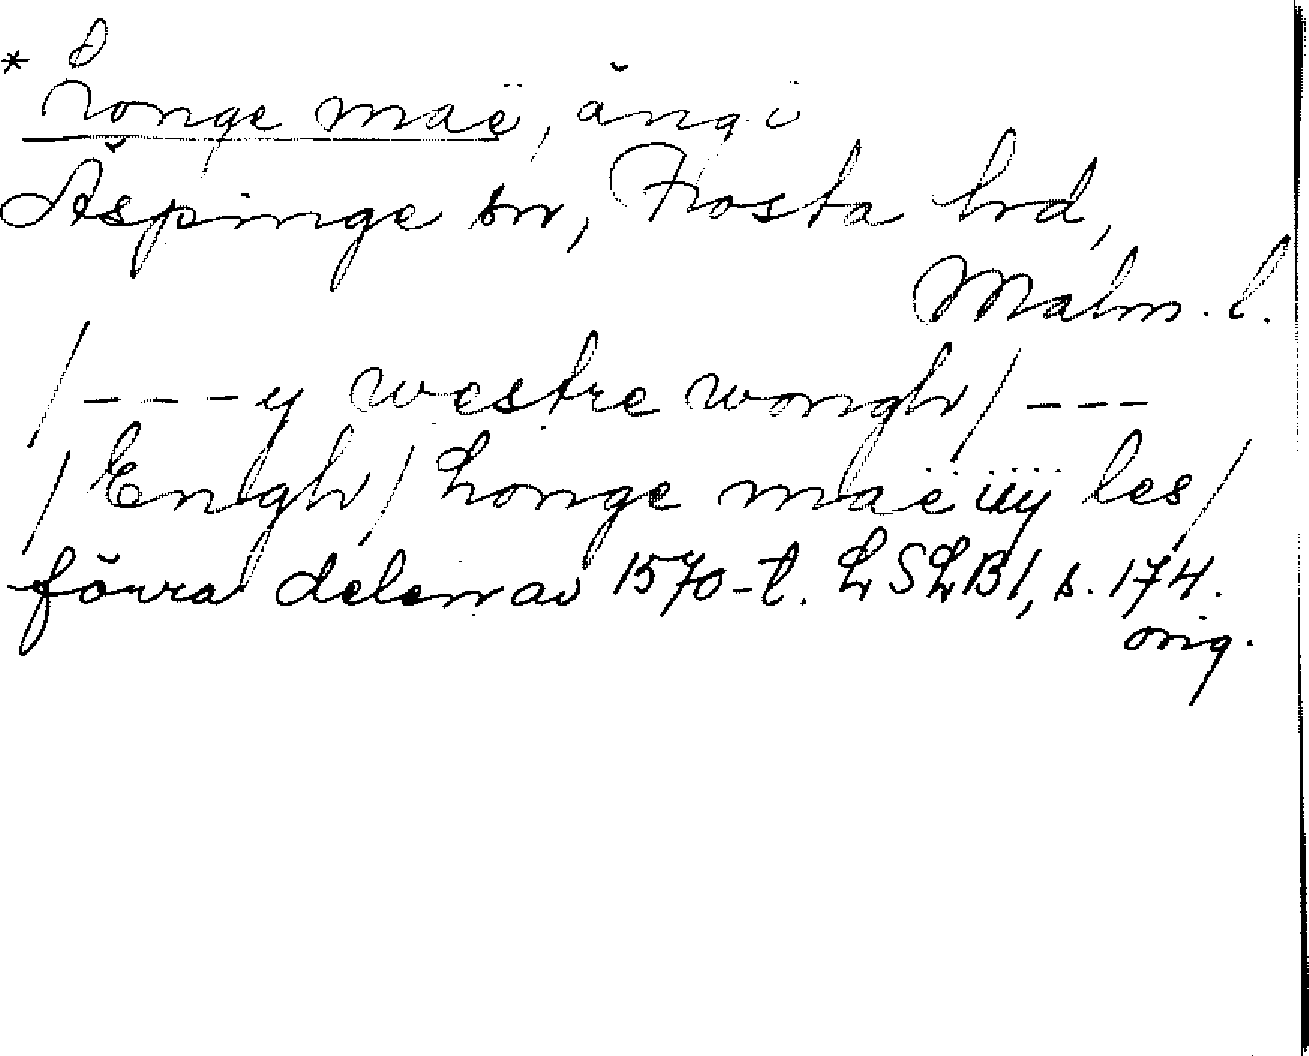 * Longe maë, äng i
Äspinge sn, Frosta hrd,
Malm. l.
/---y westre wongh/ ---
/Engh/ Longe maë iiij les/
förra delen av 1570-t. LSLB1, s. 174.
orig.